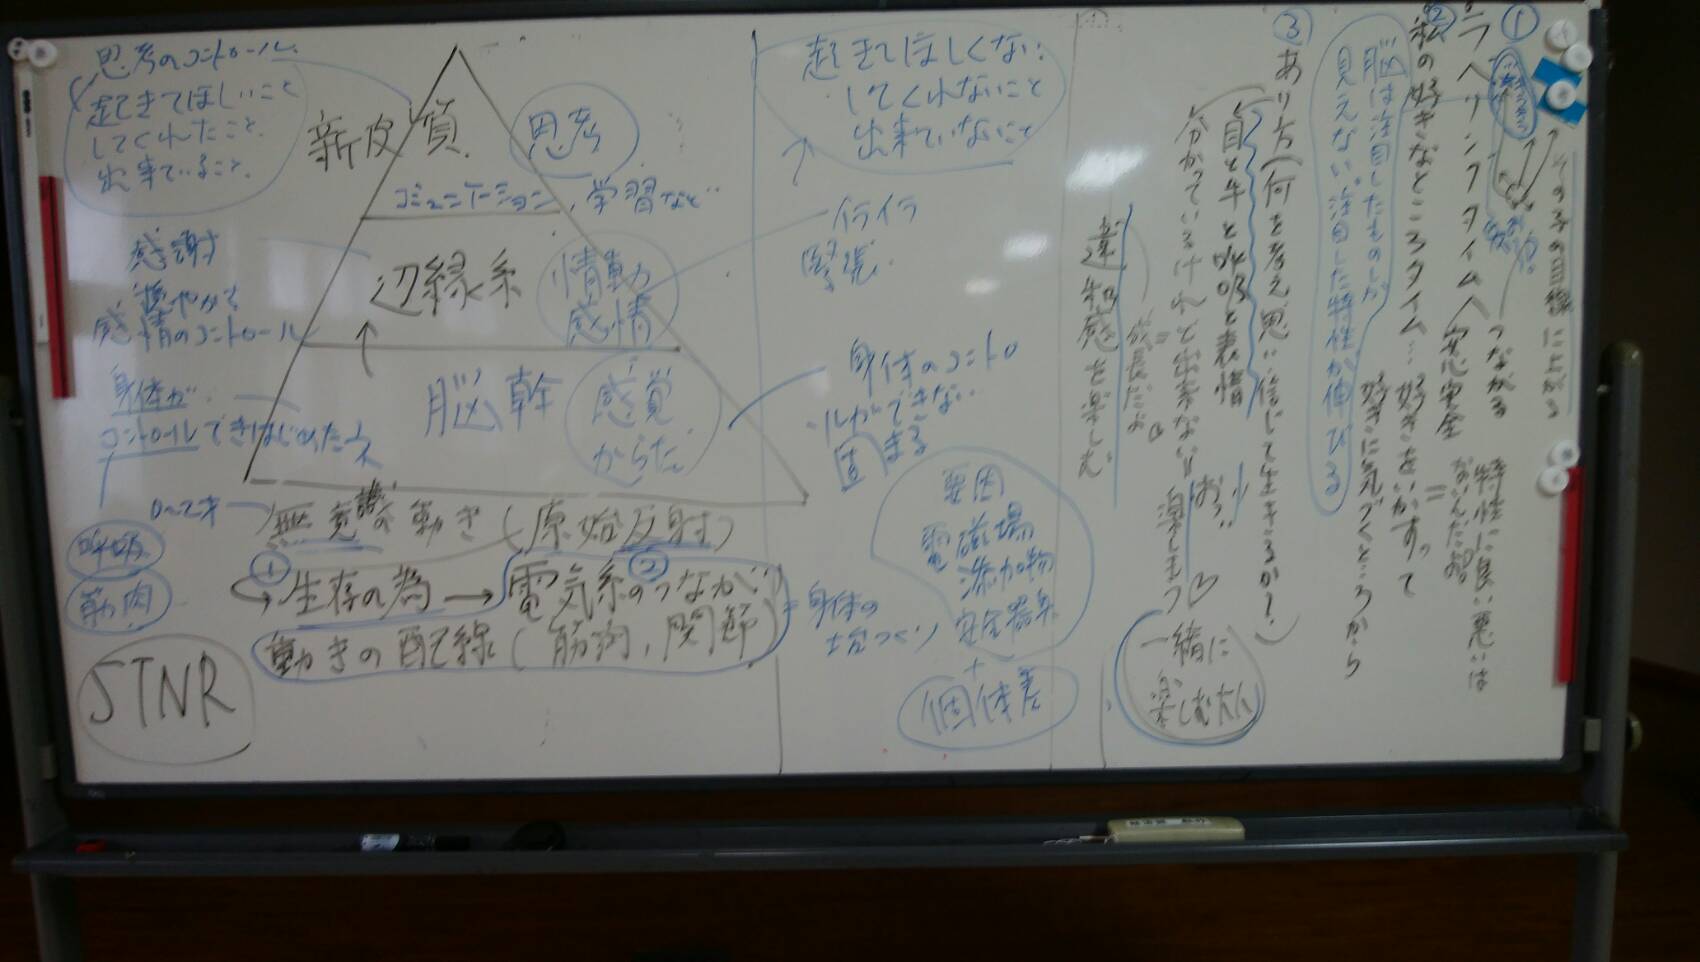 思考のコントロール
起きてほしいこと
してくれたこと、
出来ていること。
新皮質
思考
コミュニケーション、学習など
感謝
穏やかで
感情のコントロール
辺縁系
情動
感情
身体が
コントロールできはじめたネ
脳幹
感覚
からだ
0~2才
無意識の動き(原始反射)
呼吸
筋肉
①
生存の為→電気系のつながり
②
動きの配線(筋肉、関節)
STNR
起きてほしくない
してくれないこと
出来ていないこと
イライラ
緊張
身体のコントロ
ールができない
固まる
要因
電磁場
添加物
安全器系
+
個体差
身体の
土台づくり
①
ラヘリンクタイム
つながる
安心安全
特性に良い悪いは
ないんだヨ
②
私の好きなところタイム…
好きをいかすって
好きに気づくところから
脳は注目したものしか
見えない。注目した特性が伸びる
③
あり方(何を考え思い信じて生きるか!)
分かっているけれど出来ない!!
おっ
楽しもう
一緒に
楽しむ大人
違和感を楽しむ
成長だよ